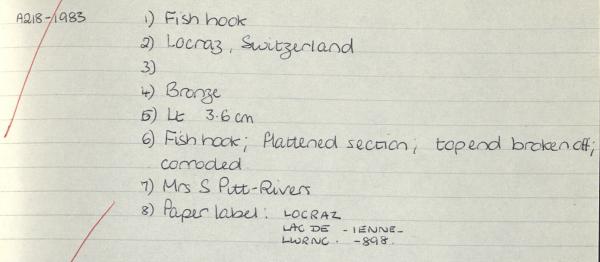 A218-1983 1) Fish hook
2) Locraz, Switzerland
3)
4) Bronze
5) Lt 3.6cm
6) Fish hook; flattened section; top end broken off;
corroded
7) Mrs S Pitt-Rivers
8) Paper label: LOCRAZ
LAC DE -IENNE-
LWRNC. -898.